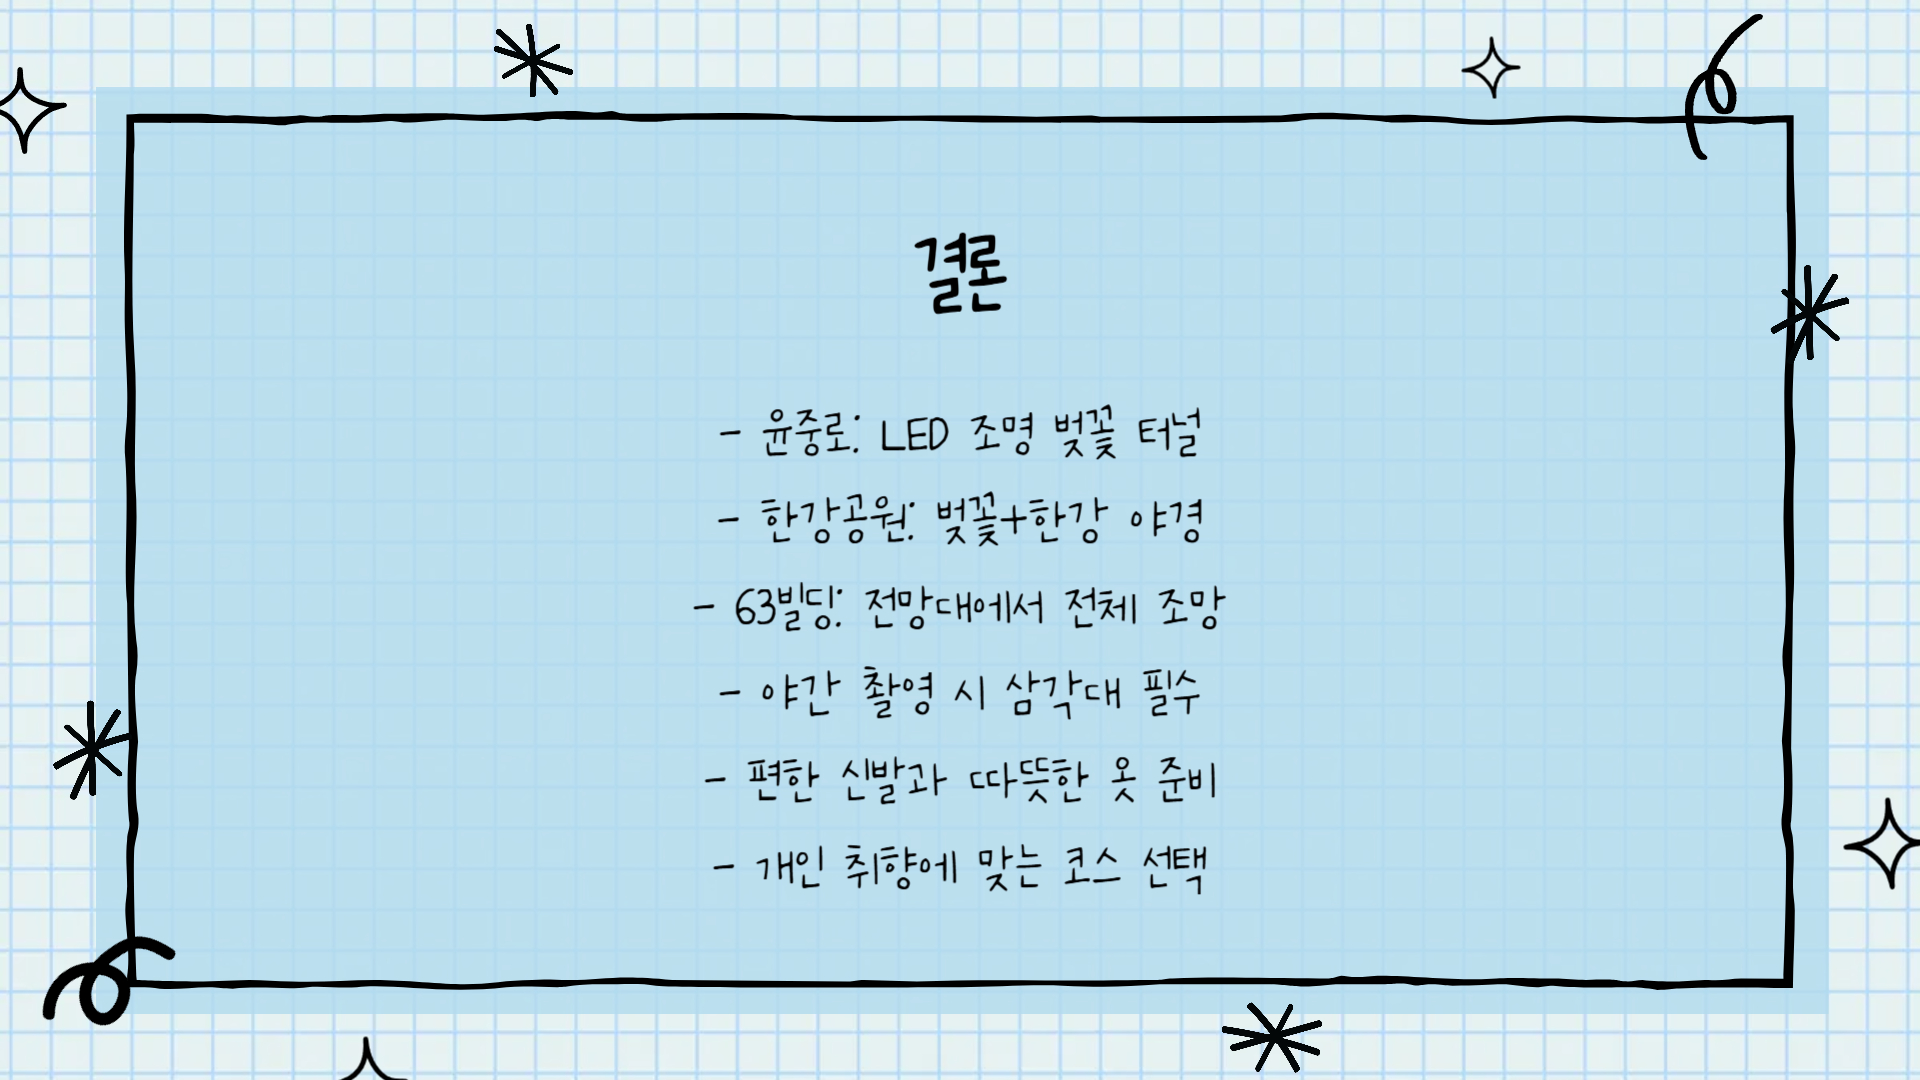 결론
- 윤중로: LED 조명 벚꽃 터널
- 한강공원: 벚꽃+한강 야경
- 63빌딩: 전망대에서 전체 조망
- 야간 촬영 시 삼각대 필수
- 편한 신발과 따뜻한 옷 준비
- 개인 취향에 맞는 코스 선택